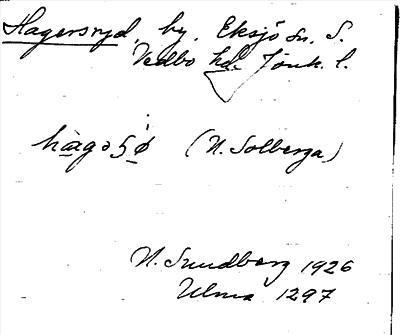 Hagersryd, by, Eksjö sn, S.
Vedbo hd. Jönk. l.
(N. Solberga)
N. Sundberg 1926
Ulma 1297